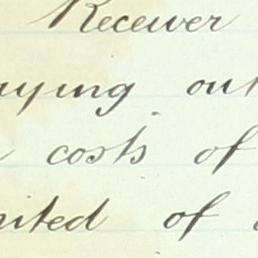 Receiver
aying out
costs of
nited of